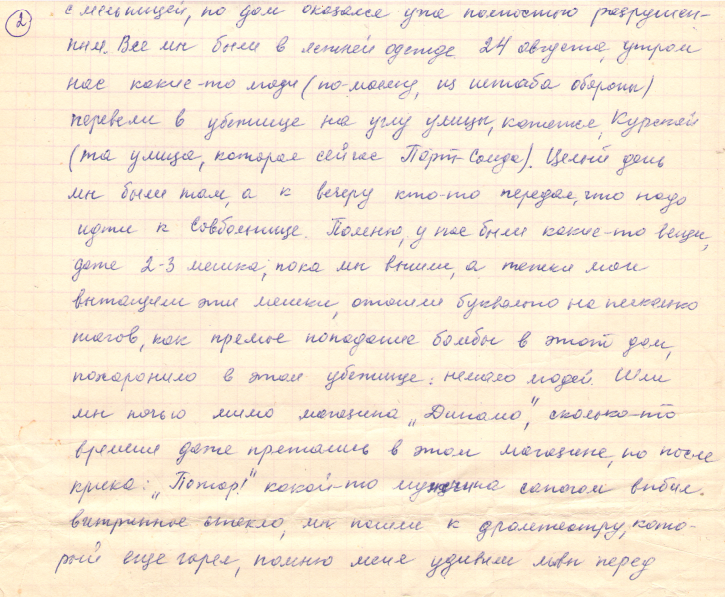 2
с мельницей, но дом оказался уже полностью разрушен-
ным. Все мы были в летней одежде. 24 августа, утром
нас какие-то люди (по-моему, из штаба обороны)
перевели в убежище на углу улицы, кажется, Курской
(та улица, которая сейчас Порт-Саида). Целый день
мы были там, а к вечеру кто-то передал, что надо
идти к Совбольнице. Помню, у нас были какие-то вещи,
даже 2-3 мешка, пока мы вышли, а тетки мои
вытащили эти мешки, отошли буквально на несколько
шагов, как прямое попадание бомбы в этот дом,
похоронило в этом убежище немало людей. Шли
мы ночью мимо магазина „Динамо", сколько-то
времени даже прятались в этом магазине, но после
крика: „Пожар!" какой-то мужчина сапогом выбил
витринное стекло, мы пошли к драмтеатру, кото-
рый еще горел, помню меня удивили львы перед